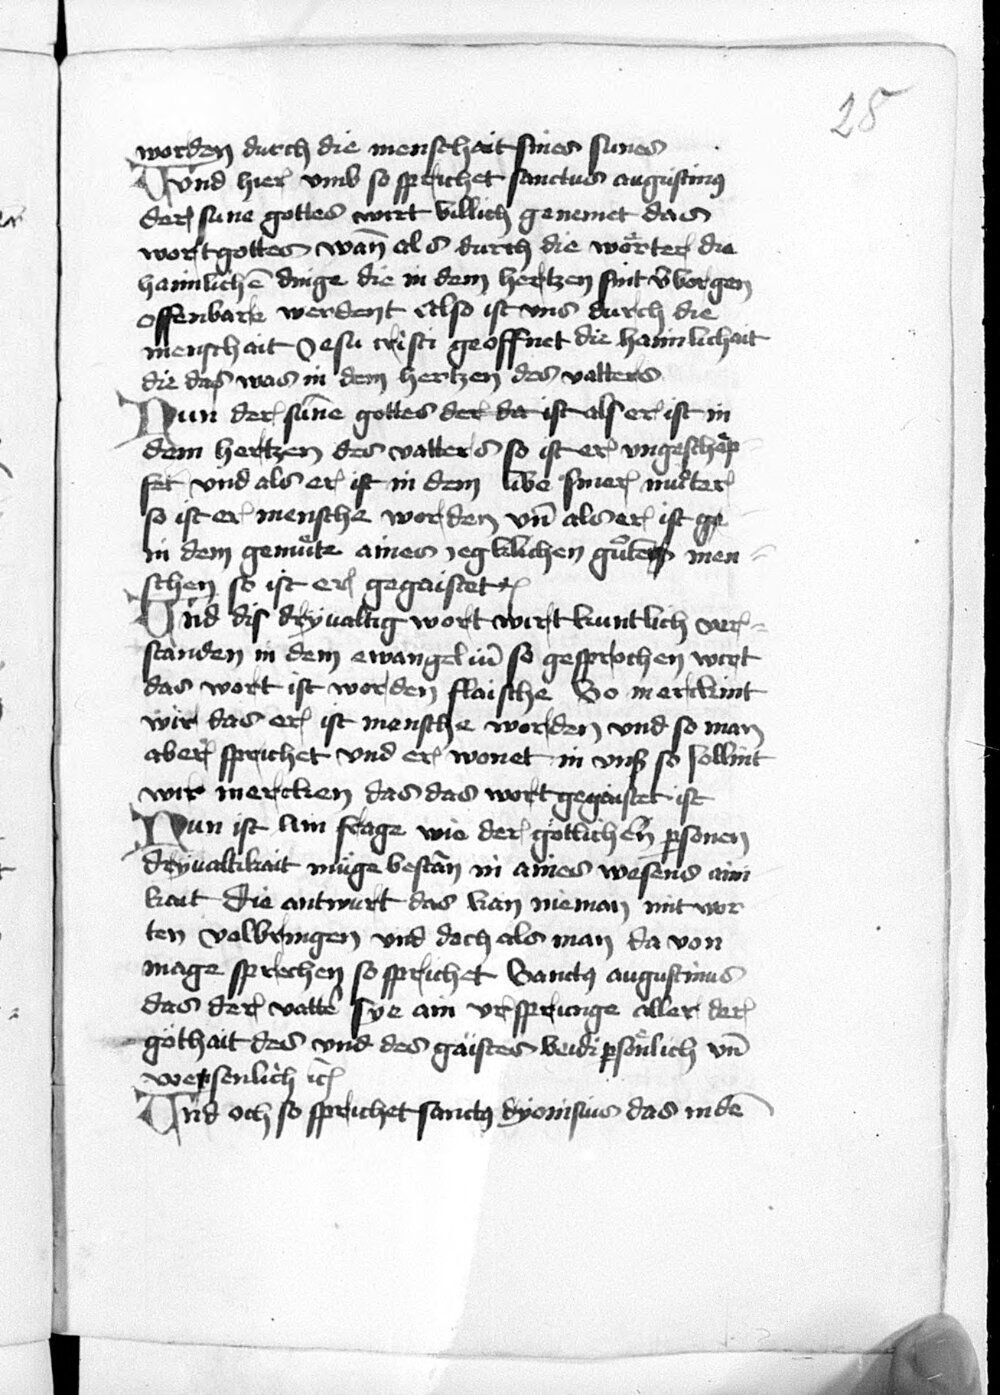 28
worden durch die menschait sines sunes
Vnd hier vmb so sprichet sanctus augustinus
der sune gottes wirt billich genemet das
wort gottes wañ als durch die wörter die
haimlichē dinge die in dem hertzen sint v̄borgen
offenbar werdent Also ist vns durch die
menschait Jesu cristi geoffnet die haimlichait
die das was in dem hertzen des vatters
Nun der sūne gottes der da ist als er ist in
dem hertzen des vatters so ist er vngeschöp-
fet vnd als er ist in dem libe siner muͦter
so ist er mensche worden vn̄ als er ist ge
in dem gemuͤte aines iegklichen guͦten men-
schen so ist er gegaistet
Vnd dis dryualtig wort wirt kuntlich ver-
standen in dem ewangeliū so gesprochen wirt
das wort ist worden flaische So merckint
wir das er ist mensche worden vnd so man
aber sprichet vnd er wonet in vnß so sollint
wir mercken das das wort gegaistet ist
Nun ist ain frage wie der göttichen psonen
dryualtikait müge bestān in aines wesens ain
kait Die antwurt das kan nieman mit wor
ten volbringen vnd doch als man da von
mage sprechen so sprichet Sanctus augustinus
das der vatter sye ain vrsprunge aller der
gothait des vnd des gaistes beidi psönlich vn̄
wesenlich
Vnd och so sprichet sanctus dyonisius das in dē